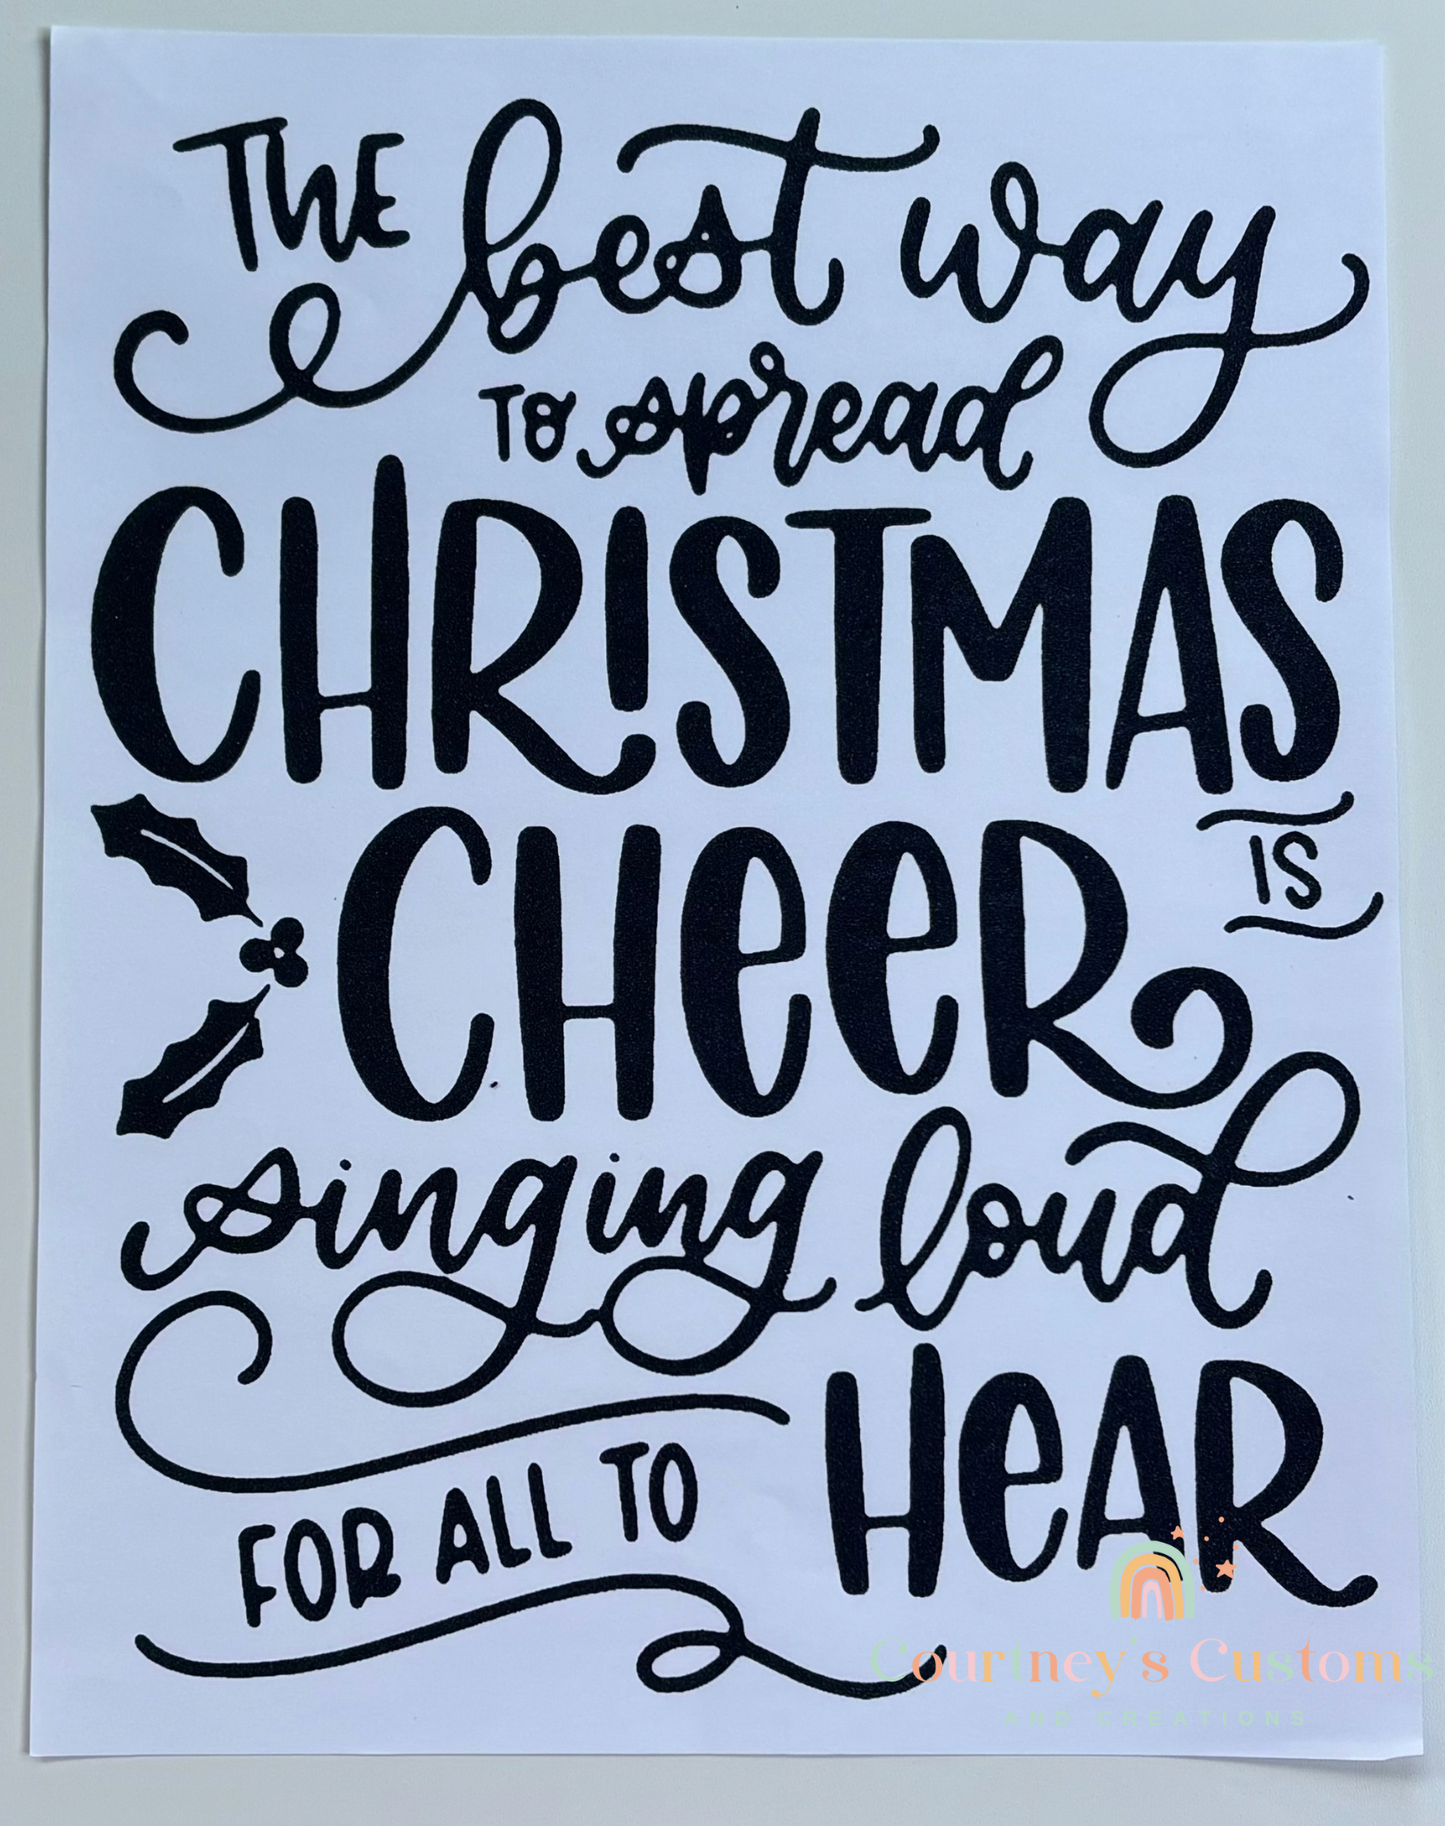 THE best way
TO spread
CHRISTMAS
CHEER
IS
singing loud
FOR ALL TO HEAR
Courtney's Customs
AND CREATIONS